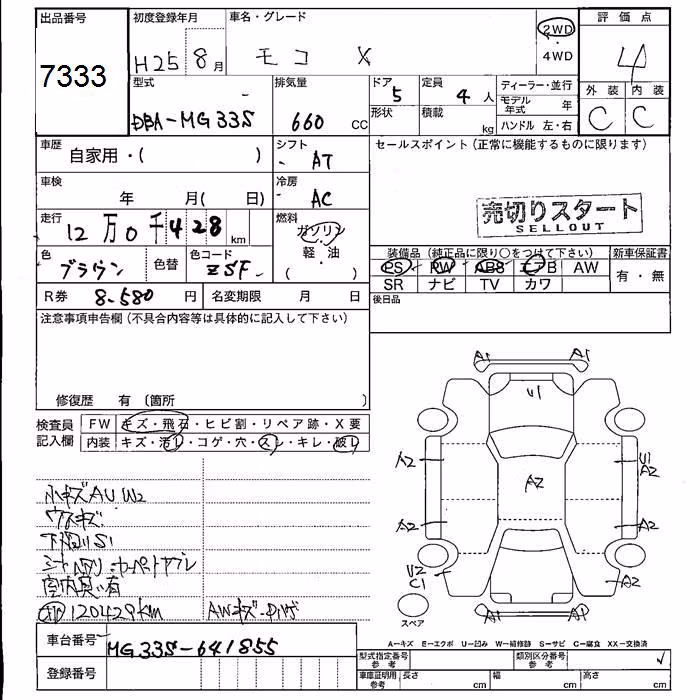 出品番号 初度登録年月 車名・グレード 評価点
7333 H25 8月 モコ X 2WD・4WD 4
型式 排気量 ドア 定員 ディーラー・並行 外装 内装
DBA-MG33S 660 CC 5 4人 モデル年式 年 C C
形状 積載 kg ハンドル 左・右
車歴 シフト セールスポイント(正常に機能するものに限ります)
自家用・( ) AT
車検 冷房
年 月( 日) AC
売切りスタート
SELLOUT
走行 燃料
12万0千428km ガソリン
軽・油
( )
色 色替 色コード 装備品(純正品に限り○をつけて下さい) 新車保証書
ブラウン ZSF PS PW ABS エアB AW 有・無
SR ナビ TV カワ
R券 8,580円 名変期限 月 日 後日品
注意事項申告欄(不具合内容等は具体的に記入して下さい)
修復歴 有 〔箇所 〕
検査員記入欄 FW キズ・飛石・ヒビ割・リペア跡・X要
内装 キズ・汚レ・コゲ・穴・スレ・キレ・破レ
A1 A1
U1
A2 A2 U1 A2
A2 A2
U2 C1 A2
A1 A1
スペア
小キズAU W2
ウスキズ
下回りS1
シートヘタリ・カーペットヤブレ
室内臭い有
120429km AWキズ・
A—キズ E—エクボ U—凹み W—補修跡 S—サビ C—腐食 XX—交換済
車台番号 MG33S-641855
登録番号
型式指定番号 参考 類別区分番号 参考
車庫証明用 参考 長さ cm 幅 cm 高さ cm